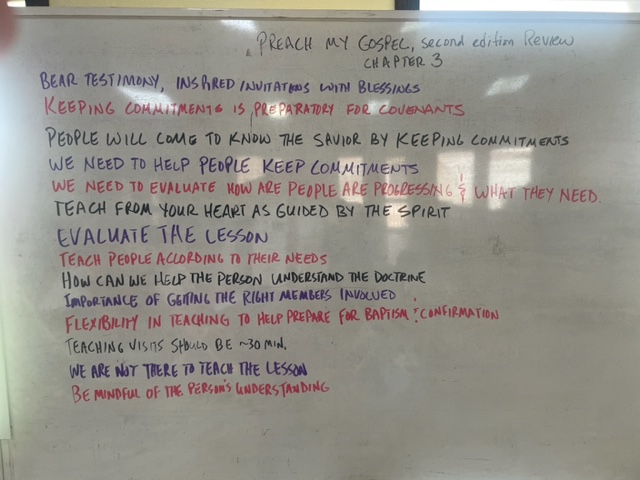 PREACH MY GOSPEL, second edition Review
CHAPTER 3
BEAR TESTIMONY, INSPIRED INVITATIONS WITH BLESSINGS
KEEPING COMMITMENTS IS PREPARATORY FOR COVENANTS
PEOPLE WILL COME TO KNOW THE SAVIOR BY KEEPING COMMITMENTS
WE NEED TO HELP PEOPLE KEEP COMMITMENTS
WE NEED TO EVALUATE HOW ARE PEOPLE ARE PROGRESSING & WHAT THEY NEED.
TEACH FROM YOUR HEART AS GUIDED BY THE SPIRIT
EVALUATE THE LESSON
TEACH PEOPLE ACCORDING TO THEIR NEEDS
HOW CAN WE HELP THE PERSON UNDERSTAND THE DOCTRINE
IMPORTANCE OF GETTING THE RIGHT MEMBERS INVOLVED
FLEXIBILITY IN TEACHING TO HELP PREPARE FOR BAPTISM & CONFIRMATION
TEACHING VISITS SHOULD BE ~30 MIN.
WE ARE NOT THERE TO TEACH THE LESSON
BE MINDFUL OF THE PERSON'S UNDERSTANDING